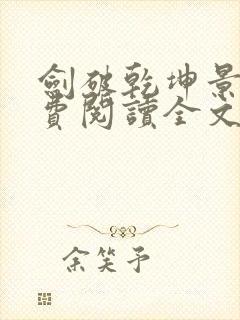 劍破乾坤景
費閱讀全文
余笑予